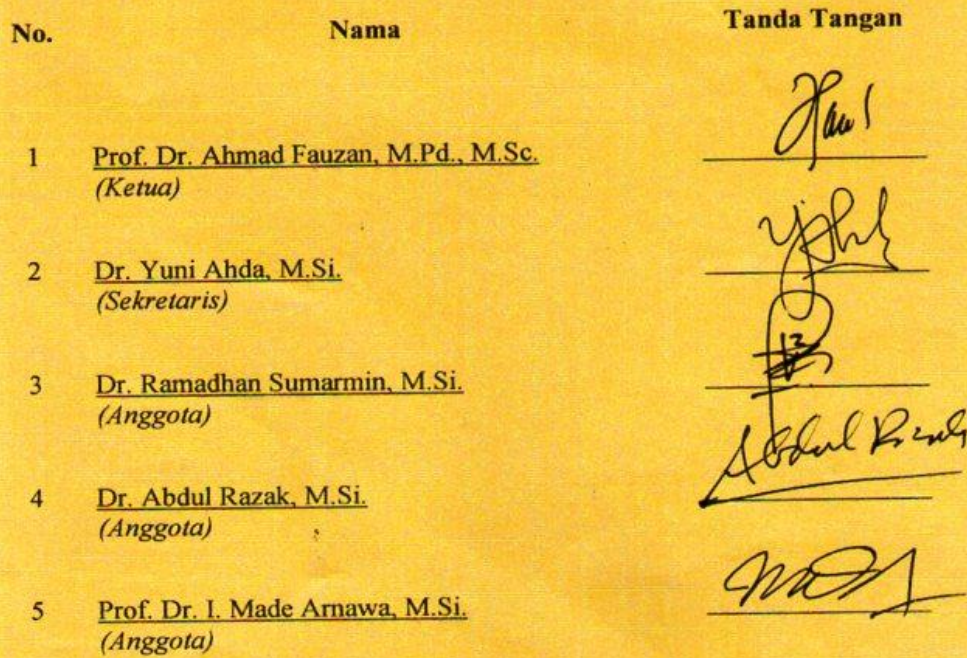 No. Nama Tanda Tangan
1 Prof. Dr. Ahmad Fauzan, M.Pd., M.Sc.
(Ketua)
2 Dr. Yuni Ahda, M.Si.
(Sekretaris)
3 Dr. Ramadhan Sumarmin, M.Si.
(Anggota)
4 Dr. Abdul Razak, M.Si. Abdul Razak
(Anggota)
5 Prof. Dr. I. Made Arnawa, M.Si.
(Anggota)